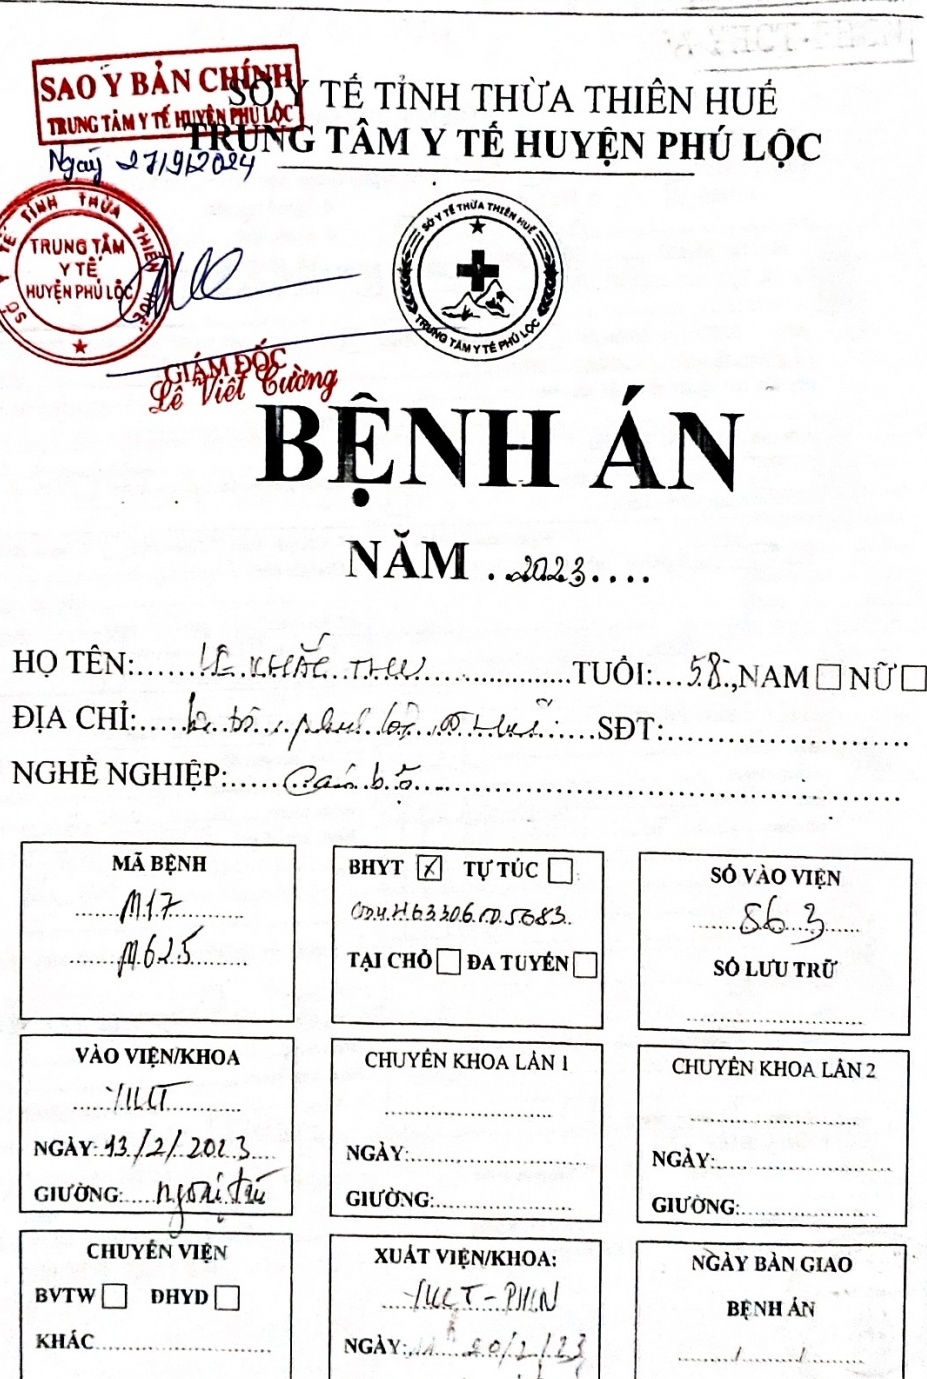 SAO Y BẢN CHÍNH
TRUNG TÂM Y TẾ HUYỆN PHÚ LỘC
Ngày 27/9/2024
SỞ Y TẾ TỈNH THỪA THIÊN HUẾ
TRUNG TÂM Y TẾ HUYỆN PHÚ LỘC
SỞ Y TẾ TỈNH THỪA THIÊN HUẾ
TRUNG TÂM
Y TẾ
HUYỆN PHÚ LỘC
SỞ Y TẾ THỪA THIÊN HUẾ
TRUNG TÂM Y TẾ PHÚ LỘC
GIÁM ĐỐC
Lê Viết Cường
BỆNH ÁN
NĂM ..2023....
HỌ TÊN:......LÊ KHẮC THU..............TUỔI:...58.,NAM □ NỮ □
ĐỊA CHỈ:.... phú lộc Huế......SĐT:......................
NGHỀ NGHIỆP:......Cán bộ......................................
MÃ BỆNH
M17
M62.5
BHYT ☒ TỰ TÚC □
CD4.H.63306.CD.5683.
TẠI CHỖ □ ĐA TUYẾN □
SỐ VÀO VIỆN
563
SỐ LƯU TRỮ
VÀO VIỆN/KHOA
YHCT
NGÀY: 13/2/2023
GIƯỜNG: ngoại trú
CHUYÊN KHOA LẦN 1
NGÀY:
GIƯỜNG:
CHUYÊN KHOA LẦN 2
NGÀY:
GIƯỜNG:
CHUYỂN VIỆN
BVTW □ ĐHYD □
KHÁC
XUẤT VIỆN/KHOA:
YHCT-PHCN
NGÀY: 20/2/23
NGÀY BÀN GIAO
BỆNH ÁN
....../....../......